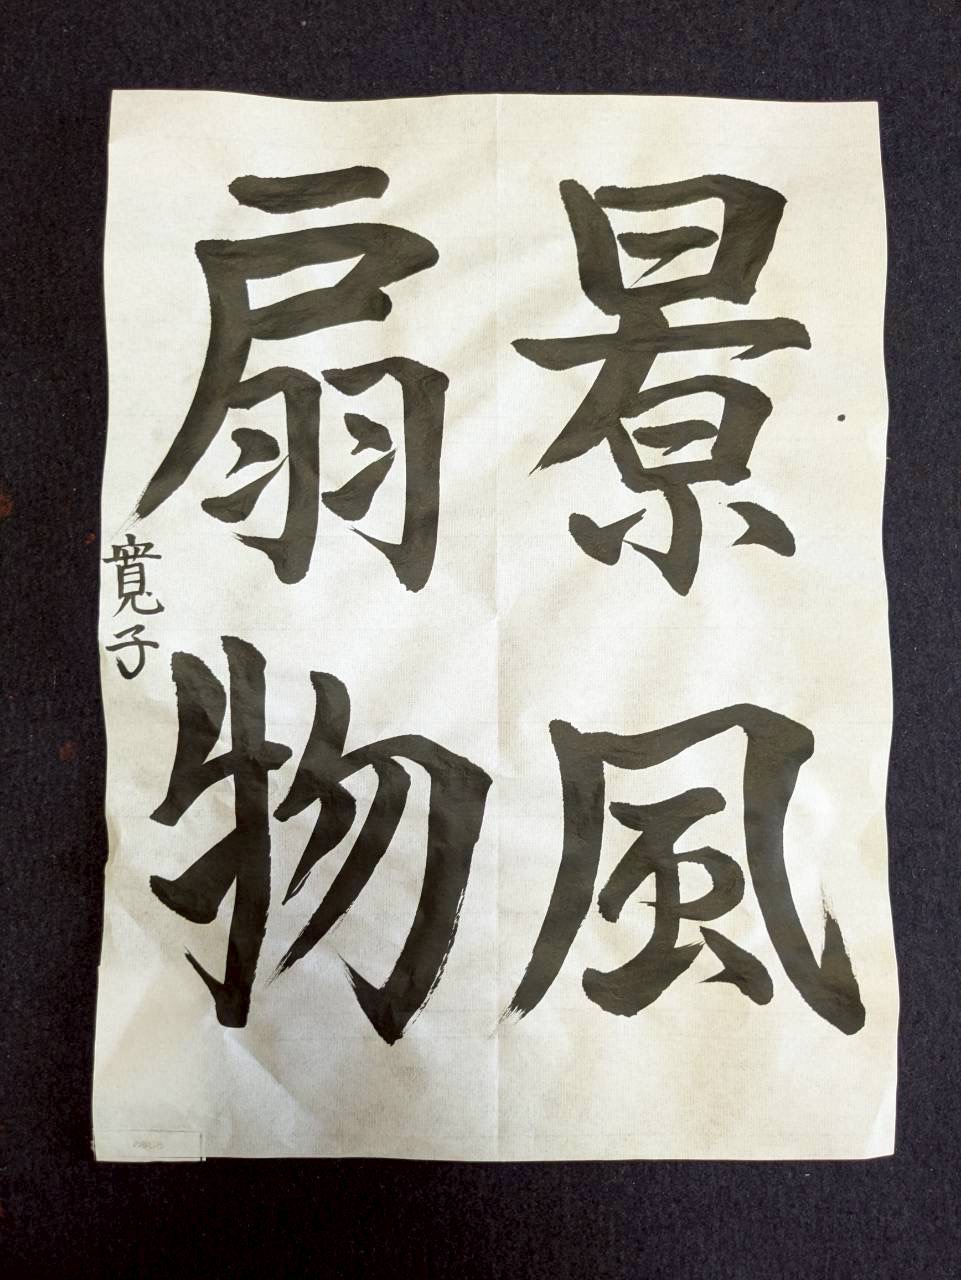 景風
扇物
寛子